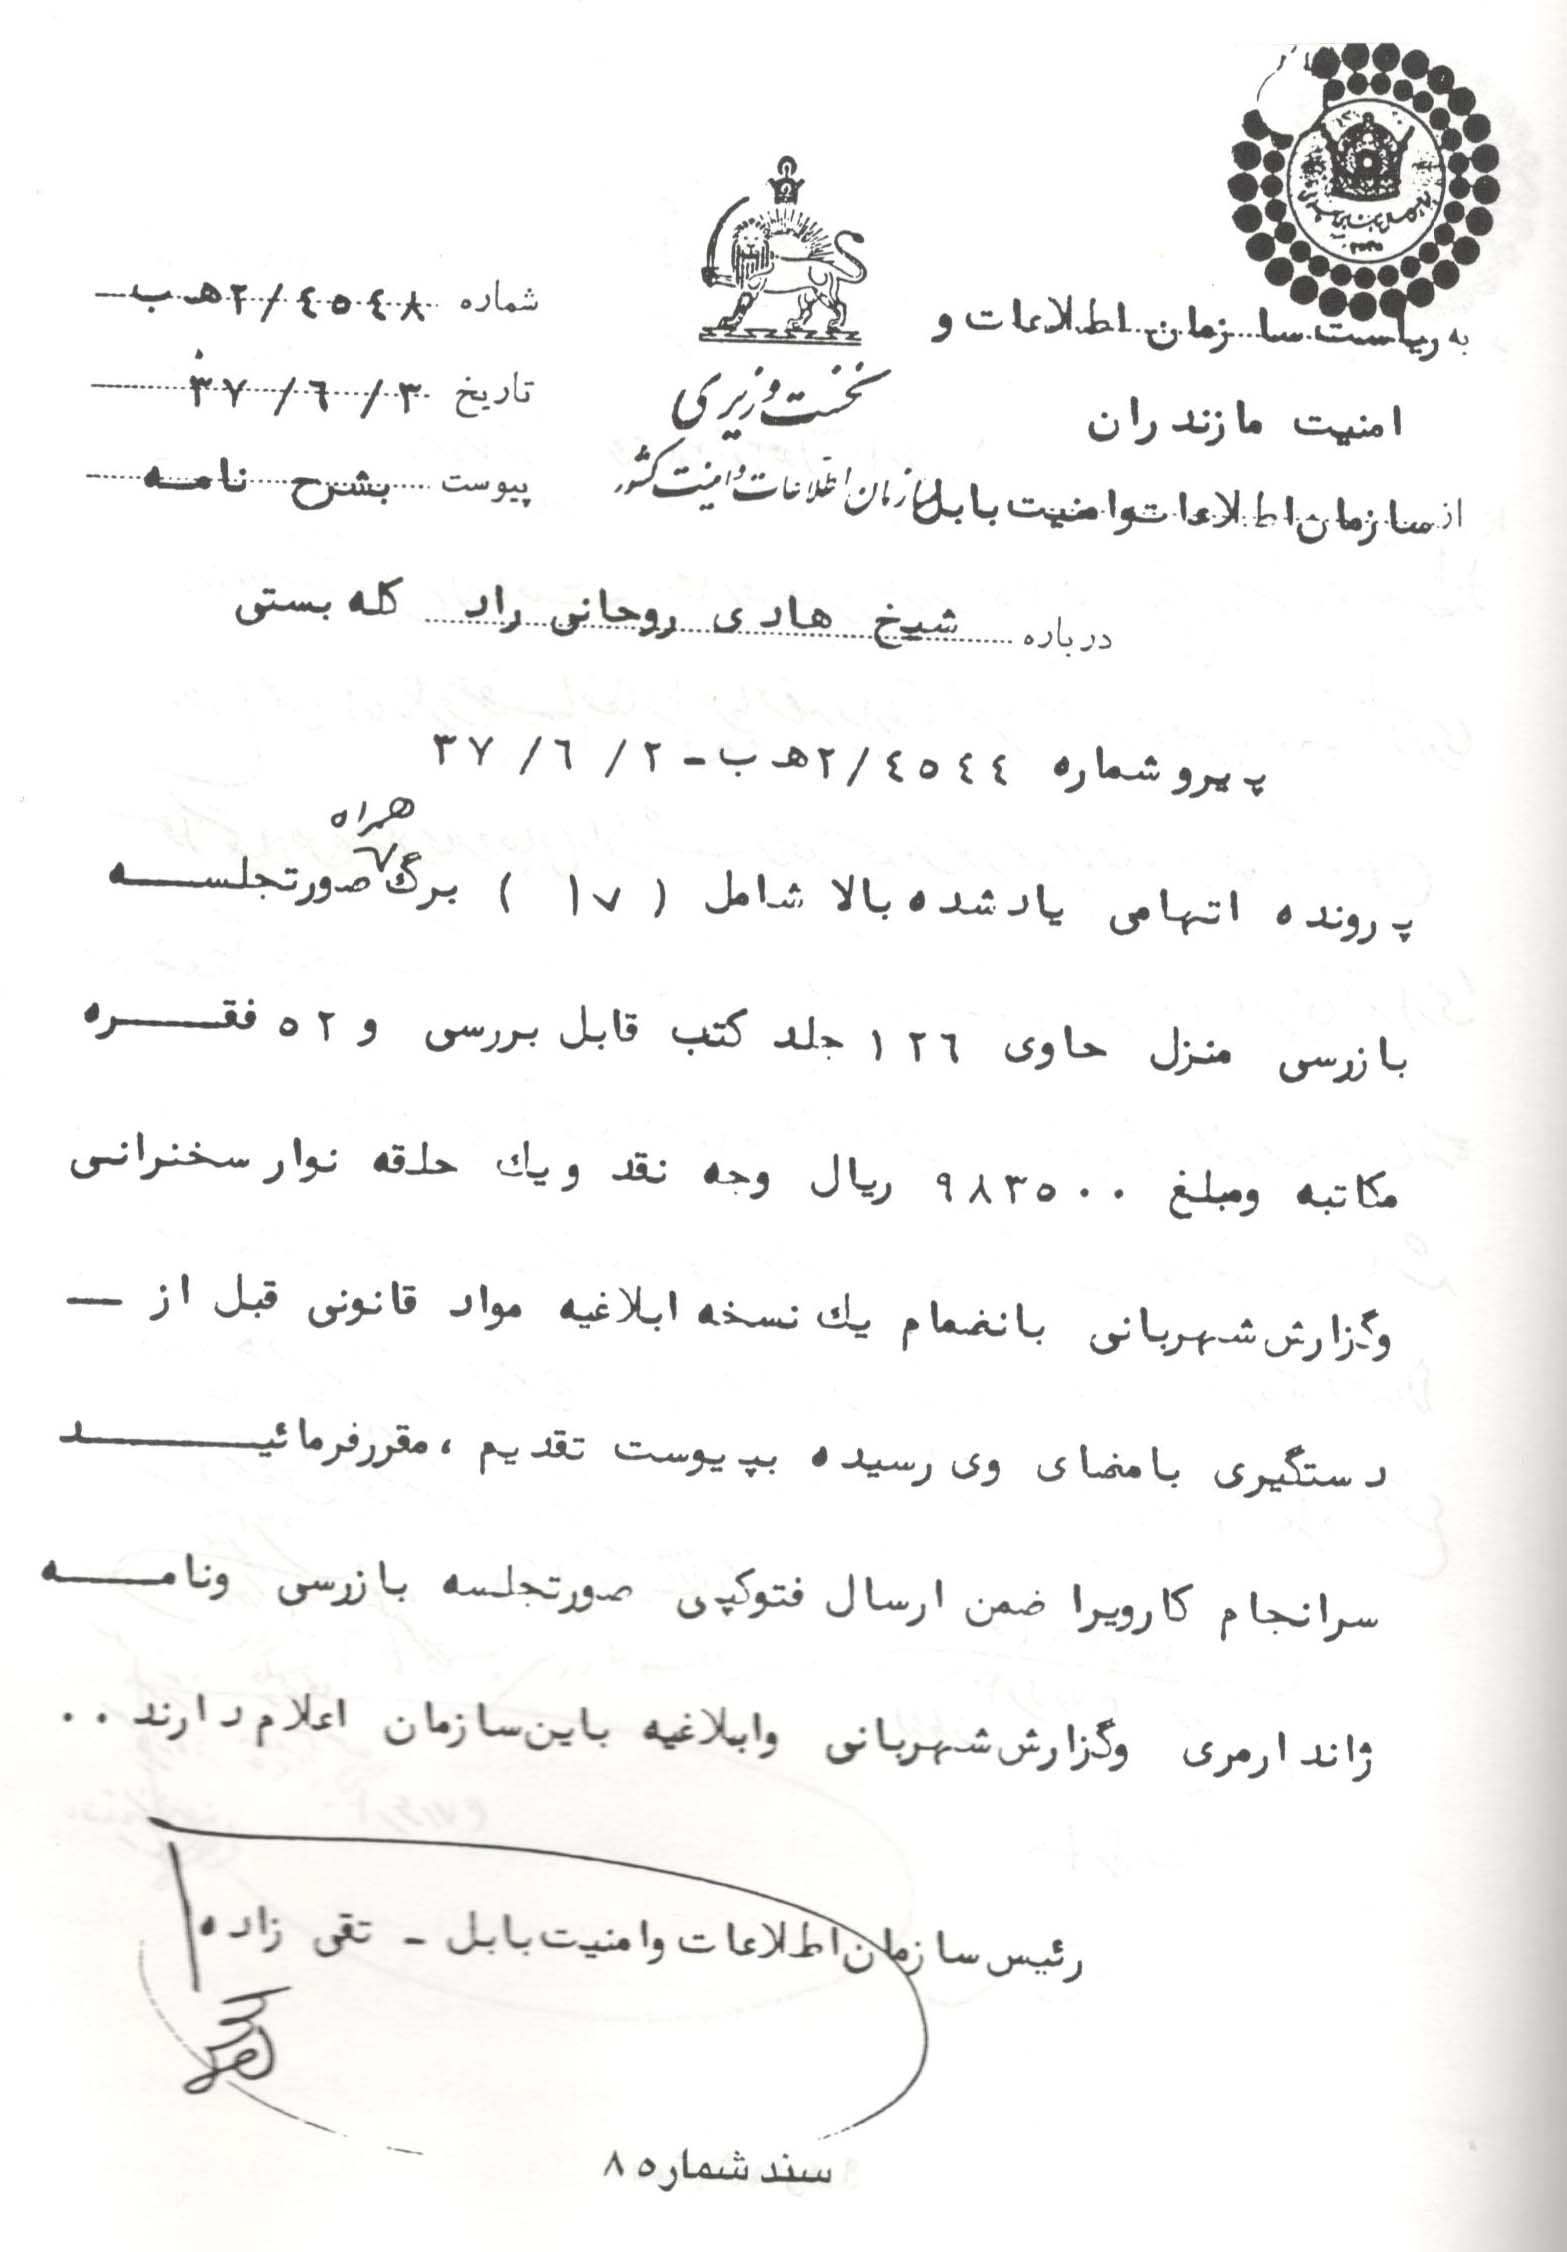 به ریاست سازمان اطلاعات و
امنیت مازندران
از سازمان اطلاعات و امنیت بابل
نخست وزیری
سازمان اطلاعات و امنیت کشور
شماره ۲/٤٥٤۸ هـ ب
تاریخ ۳/ ٦/ ۳۷
پیوست بشرح نامه
درباره شیخ هادی روحانی راد کله بستی
پیرو شماره ۲/٤٥٤٤ هـ ب - ۲/ ٦/ ۳۷
همراه
پرونده اتهامی یادشده بالا شامل ( ۱۷ ) برگ صورتجلسه
بازرسی منزل حاوی ۱۲٦ جلد کتب قابل بررسی و ۵۲ فقره
مکاتبه ومبلغ ۹۸۳۵۰۰ ریال وجه نقد ویك حلقه نوار سخنرانی
وگزارش شهربانی بانضمام یك نسخه ابلاغیه مواد قانونی قبل از —
دستگیری بامضای وی رسیده بپیوست تقدیم ، مقررفرمائید
سرانجام کارویرا ضمن ارسال فتوکپی صورتجلسه بازرسی ونامه
ژاندارمری وگزارش شهربانی وابلاغیه باین سازمان اعلام دارند . .
رئیس سازمان اطلاعات وامنیت بابل - تقی زاده
سند شماره ۸